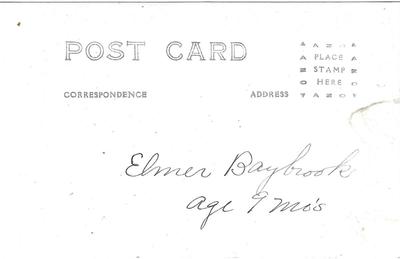 POST CARD
AZO PLACE STAMP HERE AZO
CORRESPONDENCE
ADDRESS
Elmer Baybrook
age 9 mo's